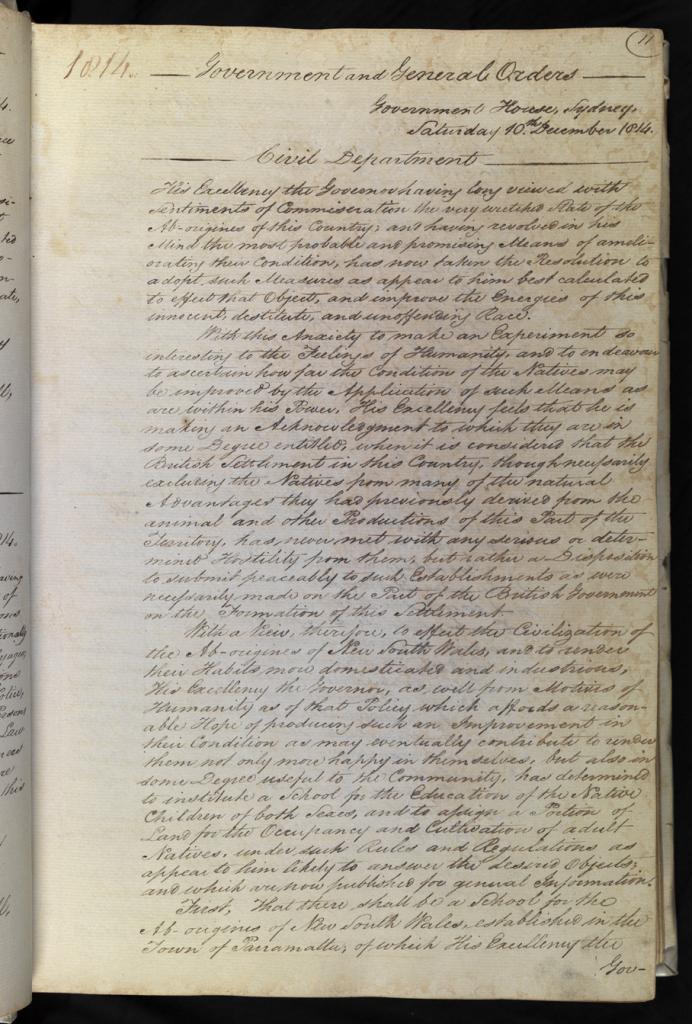 11
1814. Government and General Orders
Government House, Sydney,
Saturday 10th December 1814.
Civil Department
His Excellency the Governor having long viewed with
Sentiments of Commiseration the very wretched State of the
Ab-origines of this Country; and having revolved in his
Mind the most probable and promising Means of ameli-
orating their Condition, has now taken the Resolution to
adopt such Measures as appear to him best calculated
to effect that Object, and improve the Energies of this
innocent, destitute, and unoffending Race.
With this Anxiety to make an Experiment so
interesting to the Feelings of Humanity, and to endeavour
to ascertain how far the Condition of the Natives may
be improved by the Application of such Means as
are within his Power, His Excellency feels that he is
making an Acknowledgment to which they are in
some Degree entitled, when it is considered that the
British Settlement in this Country, though necessarily
excluding the Natives from many of the natural
Advantages they had previously derived from the
animal and other Productions of this Part of the
Territory, has never met with any serious or deter-
mined Hostility from them, but rather a Disposition
to submit peaceably to such Establishments as were
necessarily made on the Part of the British Government
on the Formation of this Settlement.
With a View, therefore, to effect the Civilization of
the Ab-origines of New South Wales, and to render
their Habits more domesticated and industrious,
His Excellency the Governor, as well from Motives of
Humanity as of that Policy which affords a reason-
able Hope of producing such an Improvement in
their Condition as may eventually contribute to render
them not only more happy in themselves, but also in
some Degree useful to the Community, has determined
to institute a School for the Education of the Native
Children of both Sexes, and to assign a Portion of
Land for the Occupancy and Cultivation of adult
Natives, under such Rules and Regulations as
appear to him likely to answer the desired Objects;
and which are now published for general Information.
First, That there shall be a School for the
Ab-origines of New South Wales, established in the
Town of Parramatta; of which His Excellency the
Gov-